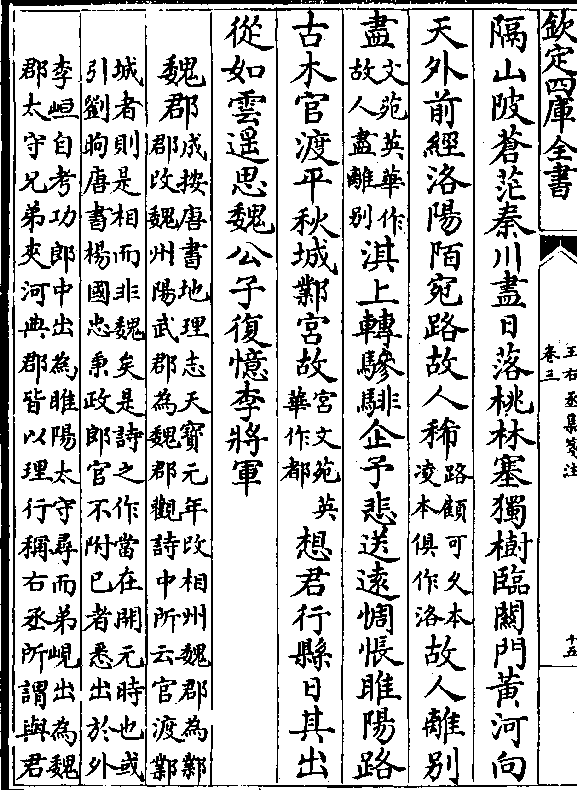 欽定四庫全書
王右丞集箋注
卷三
十五
隔山陂蒼茫秦川盡日落桃林塞獨樹臨關門黃河向
天外前經洛陽陌宛路故人稀路顧可久本凌本俱作洛故人離別
盡文苑英華作故人盡離别淇上轉驂騑企予悲送遠惆悵睢陽路
古木官渡平秋城鄴宮故宮文苑英華作都想君行縣日其出
從如雲遥思魏公子復憶李將軍
魏郡成按唐書地理志天寶元年改相州魏郡為鄴
郡改魏州陽武郡為魏郡觀詩中所云官渡鄴
城者則是相而非魏矣是詩之作當在開元時也或
引劉昫唐書楊國忠秉政郎官不附已者悉出於外
李峘自考功郎中出為睢陽太守尋而弟峴出為魏
郡太守兄弟夾河典郡皆以理行稱右丞所謂與君